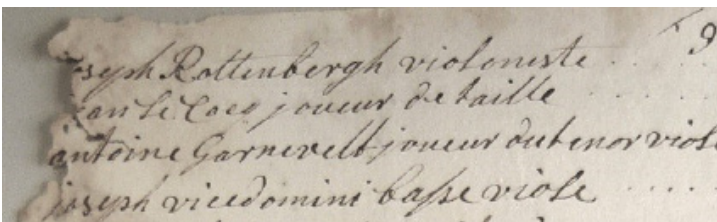 joseph Rottenbergh violoneste . . . . 9
Jan Le Cocq joueur de taille . . . . .
antoine Garnevelt joueur du tenor viole
joseph vicedomini basse viole . . . . .